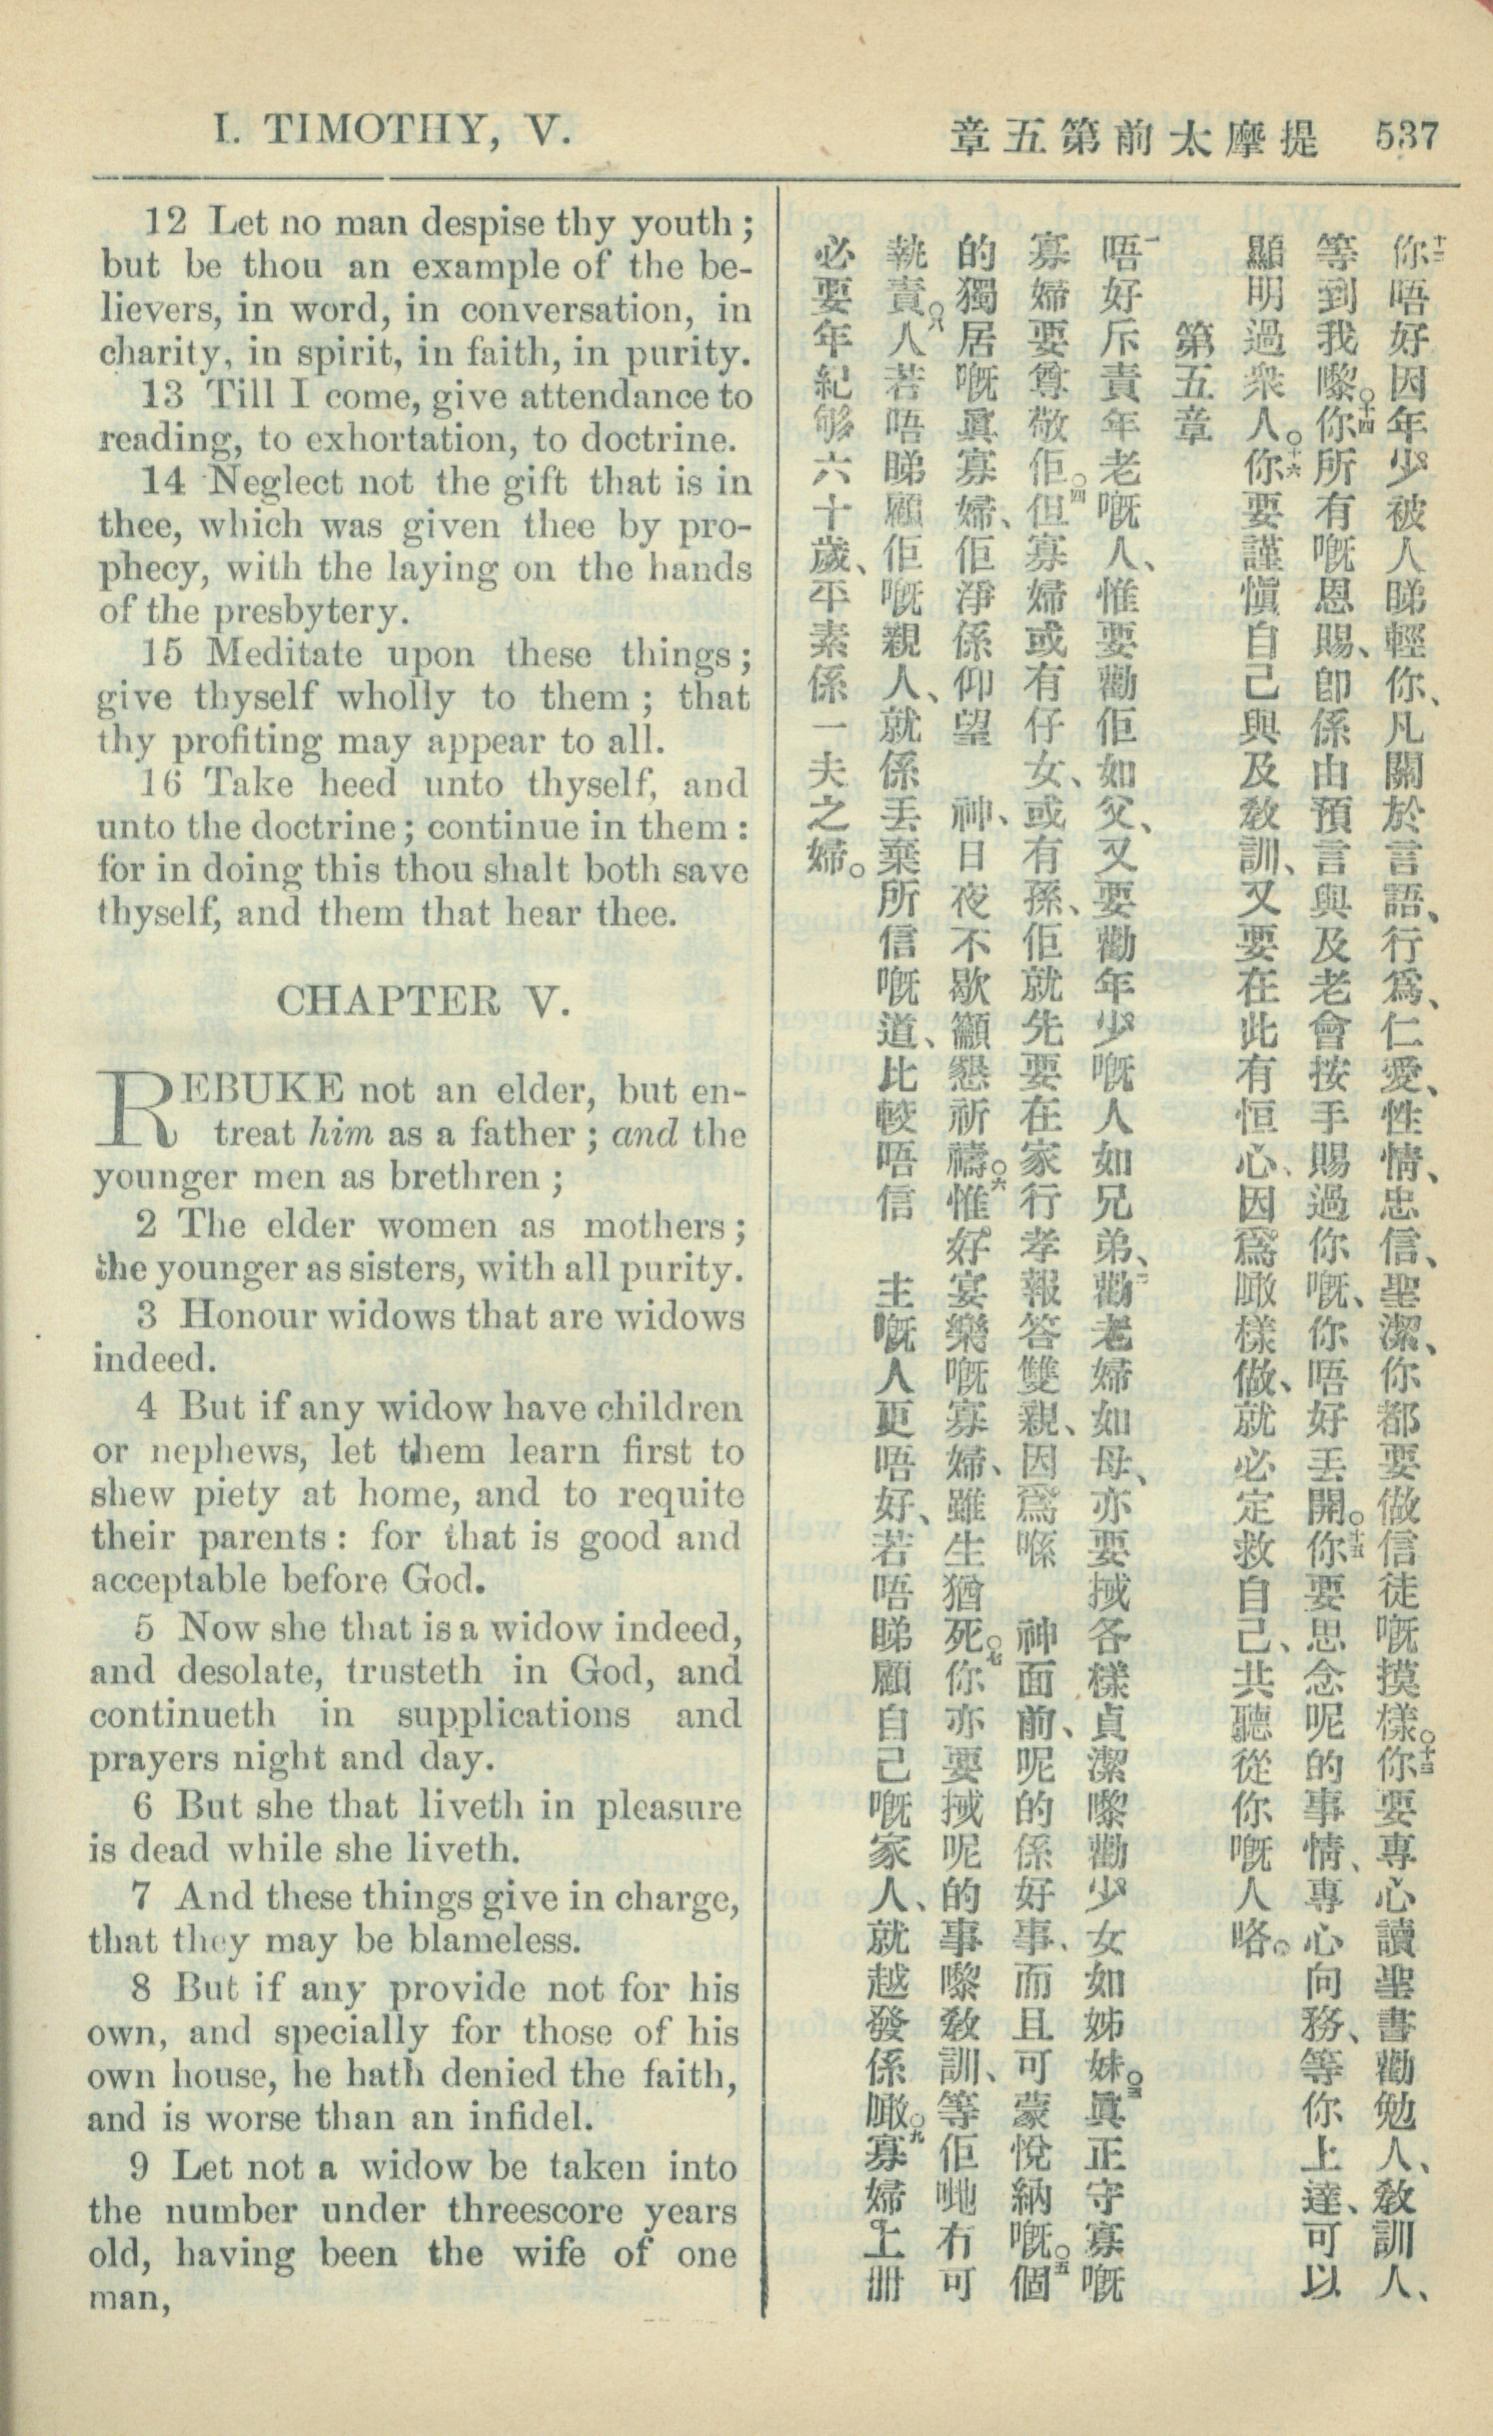 I. TIMOTHY, V.
章五第前太摩提 537
12 Let no man despise thy youth;
but be thou an example of the be-
lievers, in word, in conversation, in
charity, in spirit, in faith, in purity.
13 Till I come, give attendance to
reading, to exhortation, to doctrine.
14 Neglect not the gift that is in
thee, which was given thee by pro-
phecy, with the laying on the hands
of the presbytery.
15 Meditate upon these things;
give thyself wholly to them; that
thy profiting may appear to all.
16 Take heed unto thyself, and
unto the doctrine; continue in them:
for in doing this thou shalt both save
thyself, and them that hear thee.
CHAPTER V.
REBUKE not an elder, but en-
treat him as a father; and the
younger men as brethren;
2 The elder women as mothers;
the younger as sisters, with all purity.
3 Honour widows that are widows
indeed.
4 But if any widow have children
or nephews, let them learn first to
shew piety at home, and to requite
their parents: for that is good and
acceptable before God.
5 Now she that is a widow indeed,
and desolate, trusteth in God, and
continueth in supplications and
prayers night and day.
6 But she that liveth in pleasure
is dead while she liveth.
7 And these things give in charge,
that they may be blameless.
8 But if any provide not for his
own, and specially for those of his
own house, he hath denied the faith,
and is worse than an infidel.
9 Let not a widow be taken into
the number under threescore years
old, having been the wife of one
man,
十二你唔好因年少被人睇輕你、凡關於言語、行爲、仁愛、性情、忠信、聖潔、你都要做信徒嘅摸樣。十三你要專心讀聖書勸勉人、敎訓人、
等到我嚟。十四你所有嘅恩賜、卽係由預言與及老會按手賜過你嘅、你唔好丟開。十五你要思念呢的事情、專心向務、等你上達、可以
顯明過衆人。十六你要謹愼自己與及敎訓、又要在此有恒心、因爲噉樣做、就必定救自己、共聽從你嘅人咯。
第五章
一唔好斥責年老嘅人、惟要勸佢如父、又要勸年少嘅人如兄弟、二勸老婦如母、亦要搣各樣貞潔嚟勸少女如姊妹。三眞正守寡嘅
寡婦要尊敬佢。四但寡婦或有仔女、或有孫、佢就先要在家行孝報答雙親、因爲喺 神面前、呢的係好事、而且可蒙悅納嘅。五個
的獨居嘅眞寡婦、佢淨係仰望 神、日夜不歇籲懇祈禱。六惟好宴樂嘅寡婦、雖生猶死。七你亦要搣呢的事嚟敎訓、等佢哋冇可
執責。八人若唔睇顧佢嘅親人、就係丟棄所信嘅道、比較唔信 主嘅人更唔好、若唔睇顧自己嘅家人、就越發係噉。九寡婦上册
必要年紀够六十歲、平素係一夫之婦。